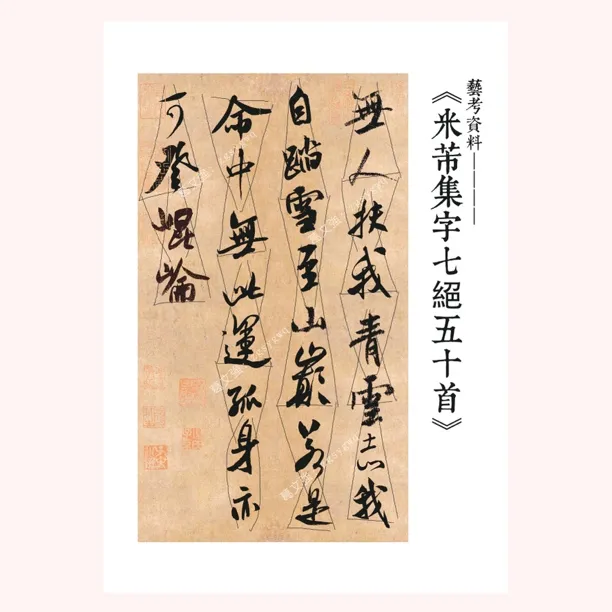 藝考資料————
《米芾集字七絕五十首》
無人扶我青雲志我
自踏雪至山巔若是
命中無此運孤身亦
可登崐崘